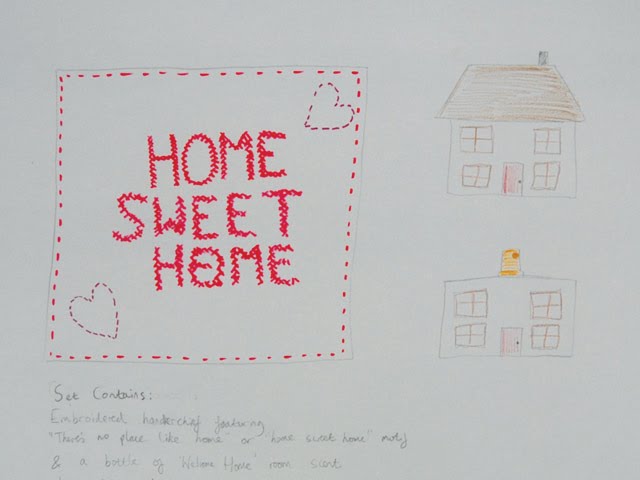 HOME
SWEET
HOME
Set Contains:
Embroidered handkerchief featuring
"There's no place like home" or "home sweet home" motif
& a bottle of 'Welcome Home' room scent